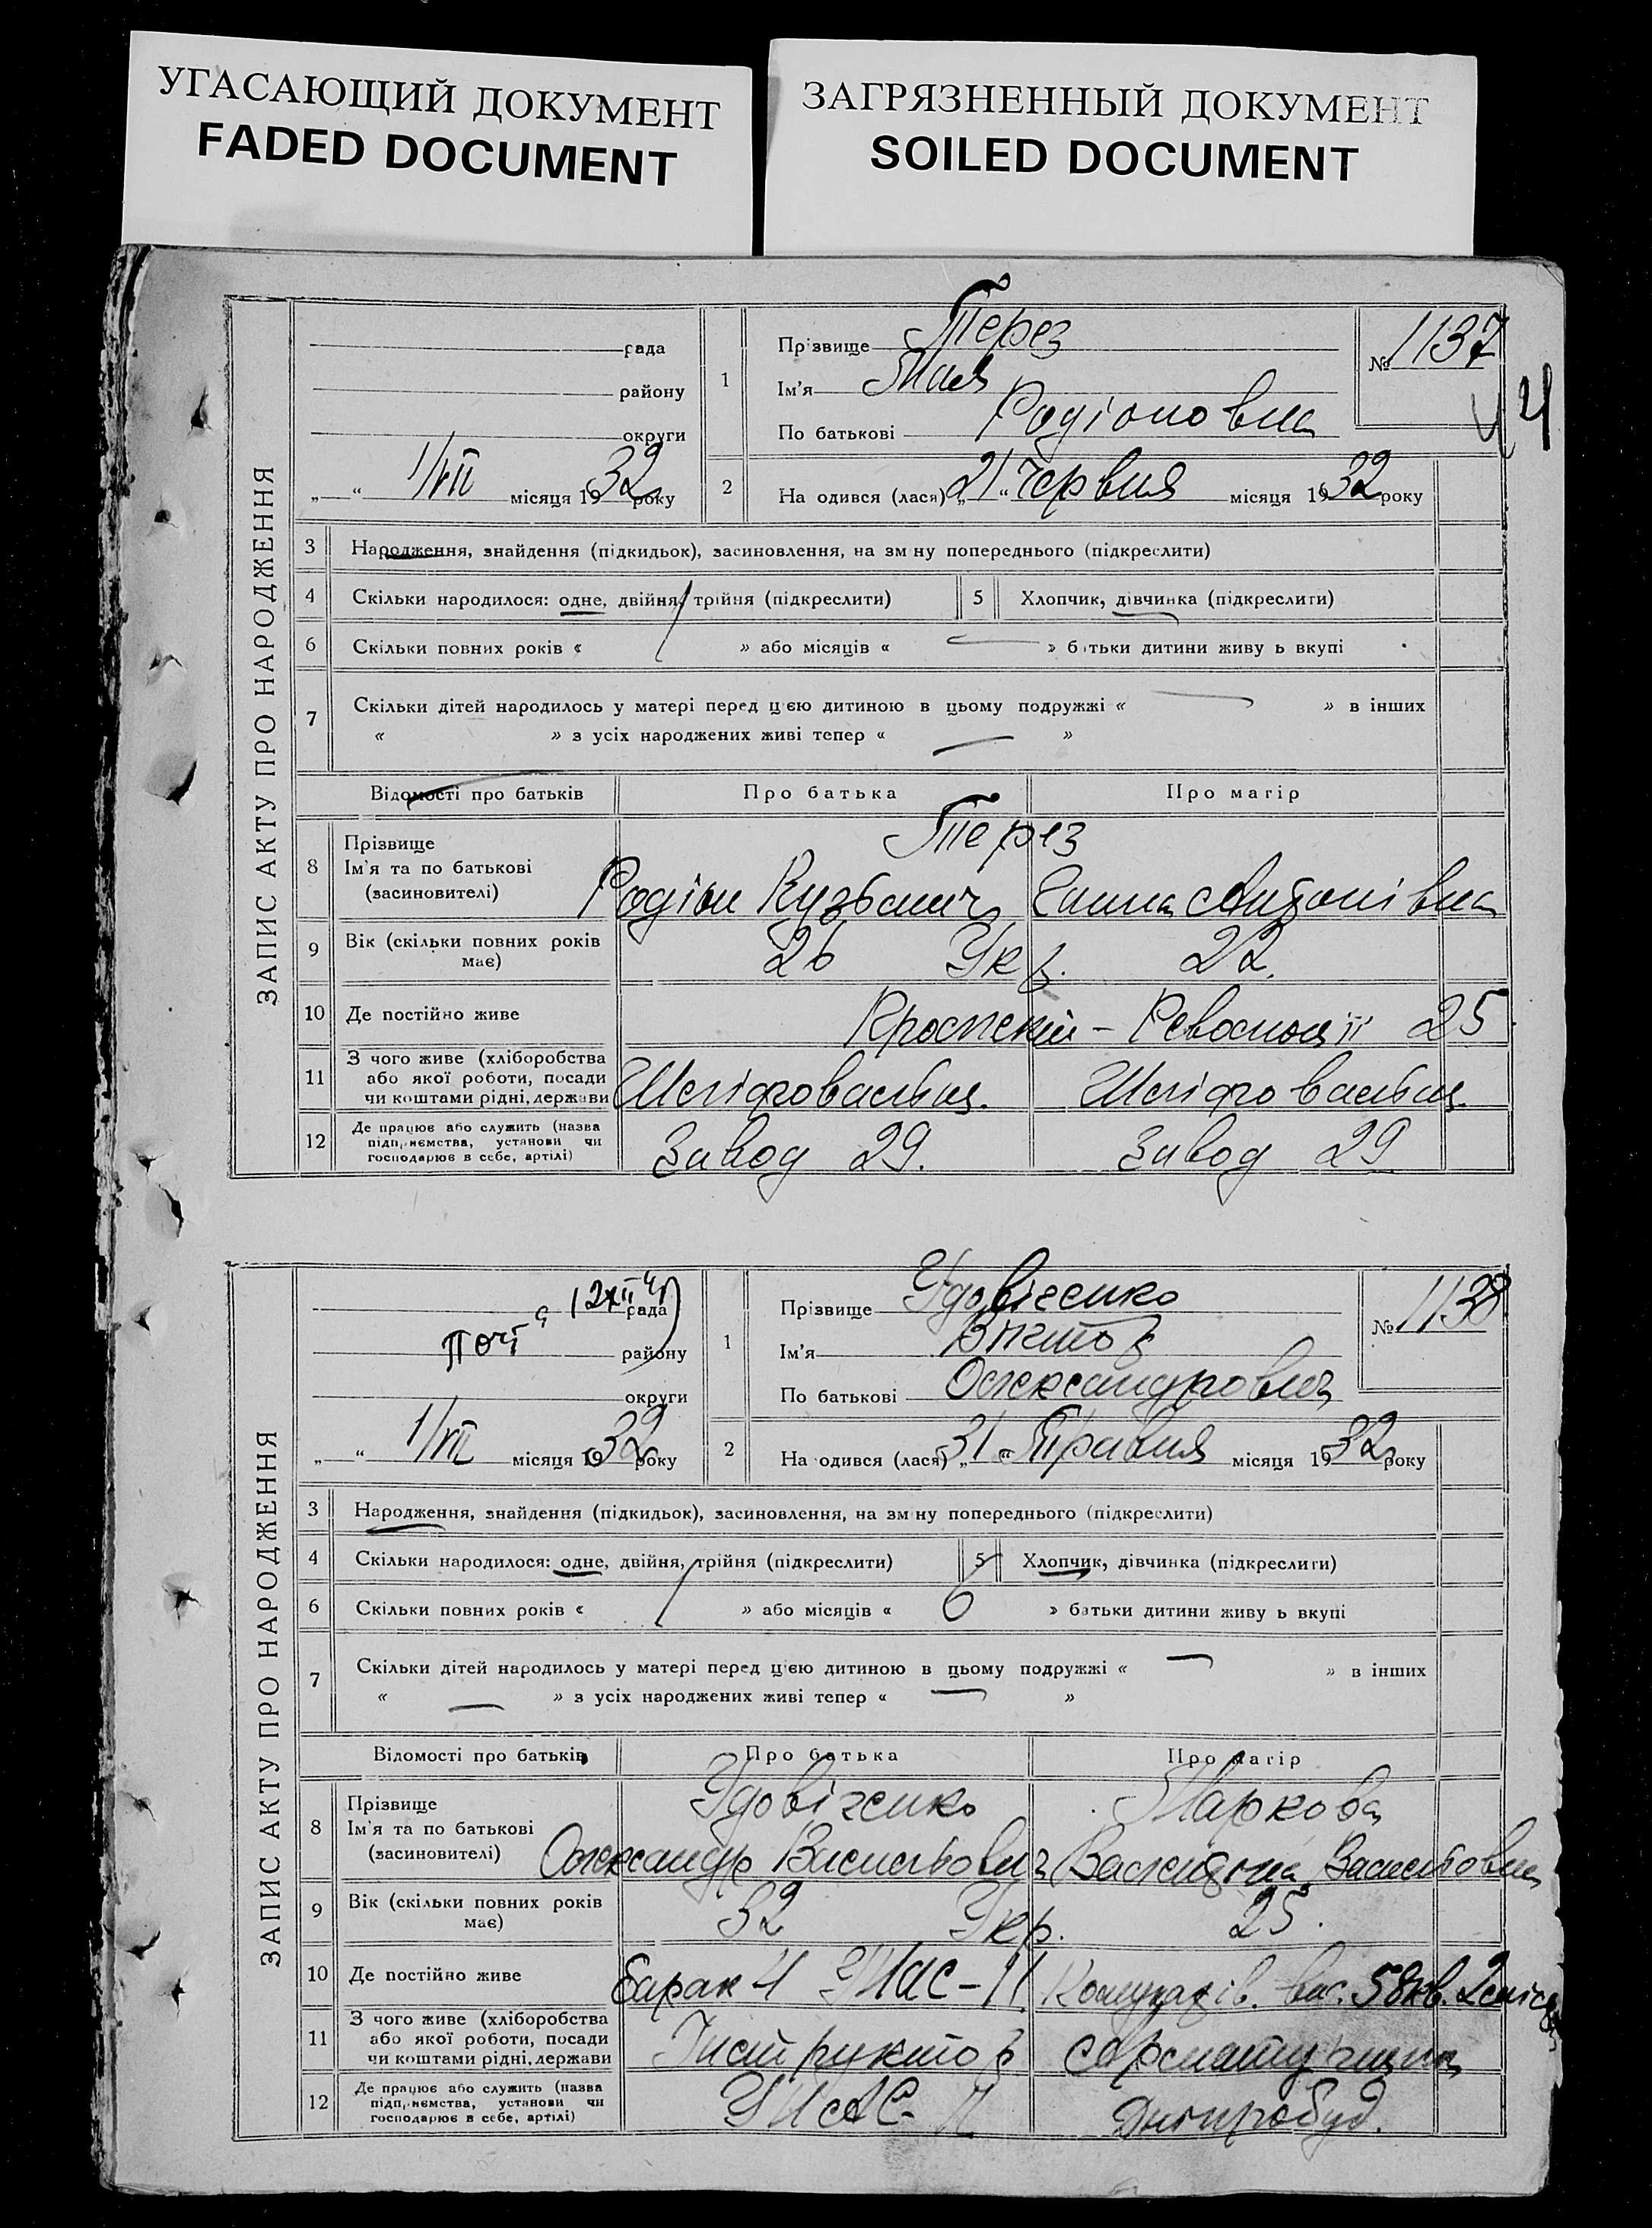 УГАСАЮЩИЙ ДОКУМЕНТ
FADED DOCUMENT
ЗАГРЯЗНЕННЫЙ ДОКУМЕНТ
SOILED DOCUMENT
ЗАПИС АКТУ ПРО НАРОДЖЕННЯ
рада
району
округи
„ “ 1/VII місяця 1932 року
1 Прізвище Терез
Ім'я Мая
По батькові Родіоновна
№ 1137
Ч
2 На одився (лася) „21“ червня місяця 1932 року
3 Народження, знайдення (підкидьок), засиновлення, на зм ну попереднього (підкреслити)
4 Скільки народилося: одне, двійня, трійня (підкреслити) 5 Хлопчик, дівчинка (підкреслити)
6 Скільки повних років « » або місяців « — » батьки дитини живу ь вкупі
7 Скільки дітей народилось у матері перед цією дитиною в цьому подружжі « — » в інших
« » з усіх народжених живі тепер « — »
Відомості про батьків Про батька Про матір
8 Прізвище
Ім'я та по батькові
(засиновителі)
Терез
Родіон Кузьмич Ганна Антонівна
9 Вік (скільки повних років має) 26 Укр. 22.
10 Де постійно живе Проспект - Революції 25
11 З чого живе (хліборобства
або якої роботи, посади
чи коштами рідні, держави
Шліфовальщ. Шліфовальщ.
12 Де працює або служить (назва
підприємства, установи чи
господарює в себе, артілі)
Завод 29. Завод 29
ЗАПИС АКТУ ПРО НАРОДЖЕННЯ
рада
району
округи
„ “ 1/VII місяця 1932 року
1 Прізвище Удовіченко
Ім'я Віктор
По батькові Олександрович
№ 1138
2 На одився (лася) „31“ Травня місяця 1932 року
3 Народження, знайдення (підкидьок), засиновлення, на зм ну попереднього (підкреслити)
4 Скільки народилося: одне, двійня, трійня (підкреслити) 5 Хлопчик, дівчинка (підкреслити)
6 Скільки повних років « » або місяців « 6 » батьки дитини живу ь вкупі
7 Скільки дітей народилось у матері перед цією дитиною в цьому подружжі « — » в інших
« — » з усіх народжених живі тепер « — »
Відомості про батьків Про батька Про матір
8 Прізвище
Ім'я та по батькові
(засиновителі)
Удовіченко Маркова
Олександр Васильович Валентина Васильовна
9 Вік (скільки повних років має) 32 Укр. 25.
10 Де постійно живе Барак 4 58 кв. 2
11 З чого живе (хліборобства
або якої роботи, посади
чи коштами рідні, держави
Інструктор
12 Де працює або служить (назва
підприємства, установи чи
господарює в себе, артілі)
Дніпробуд.